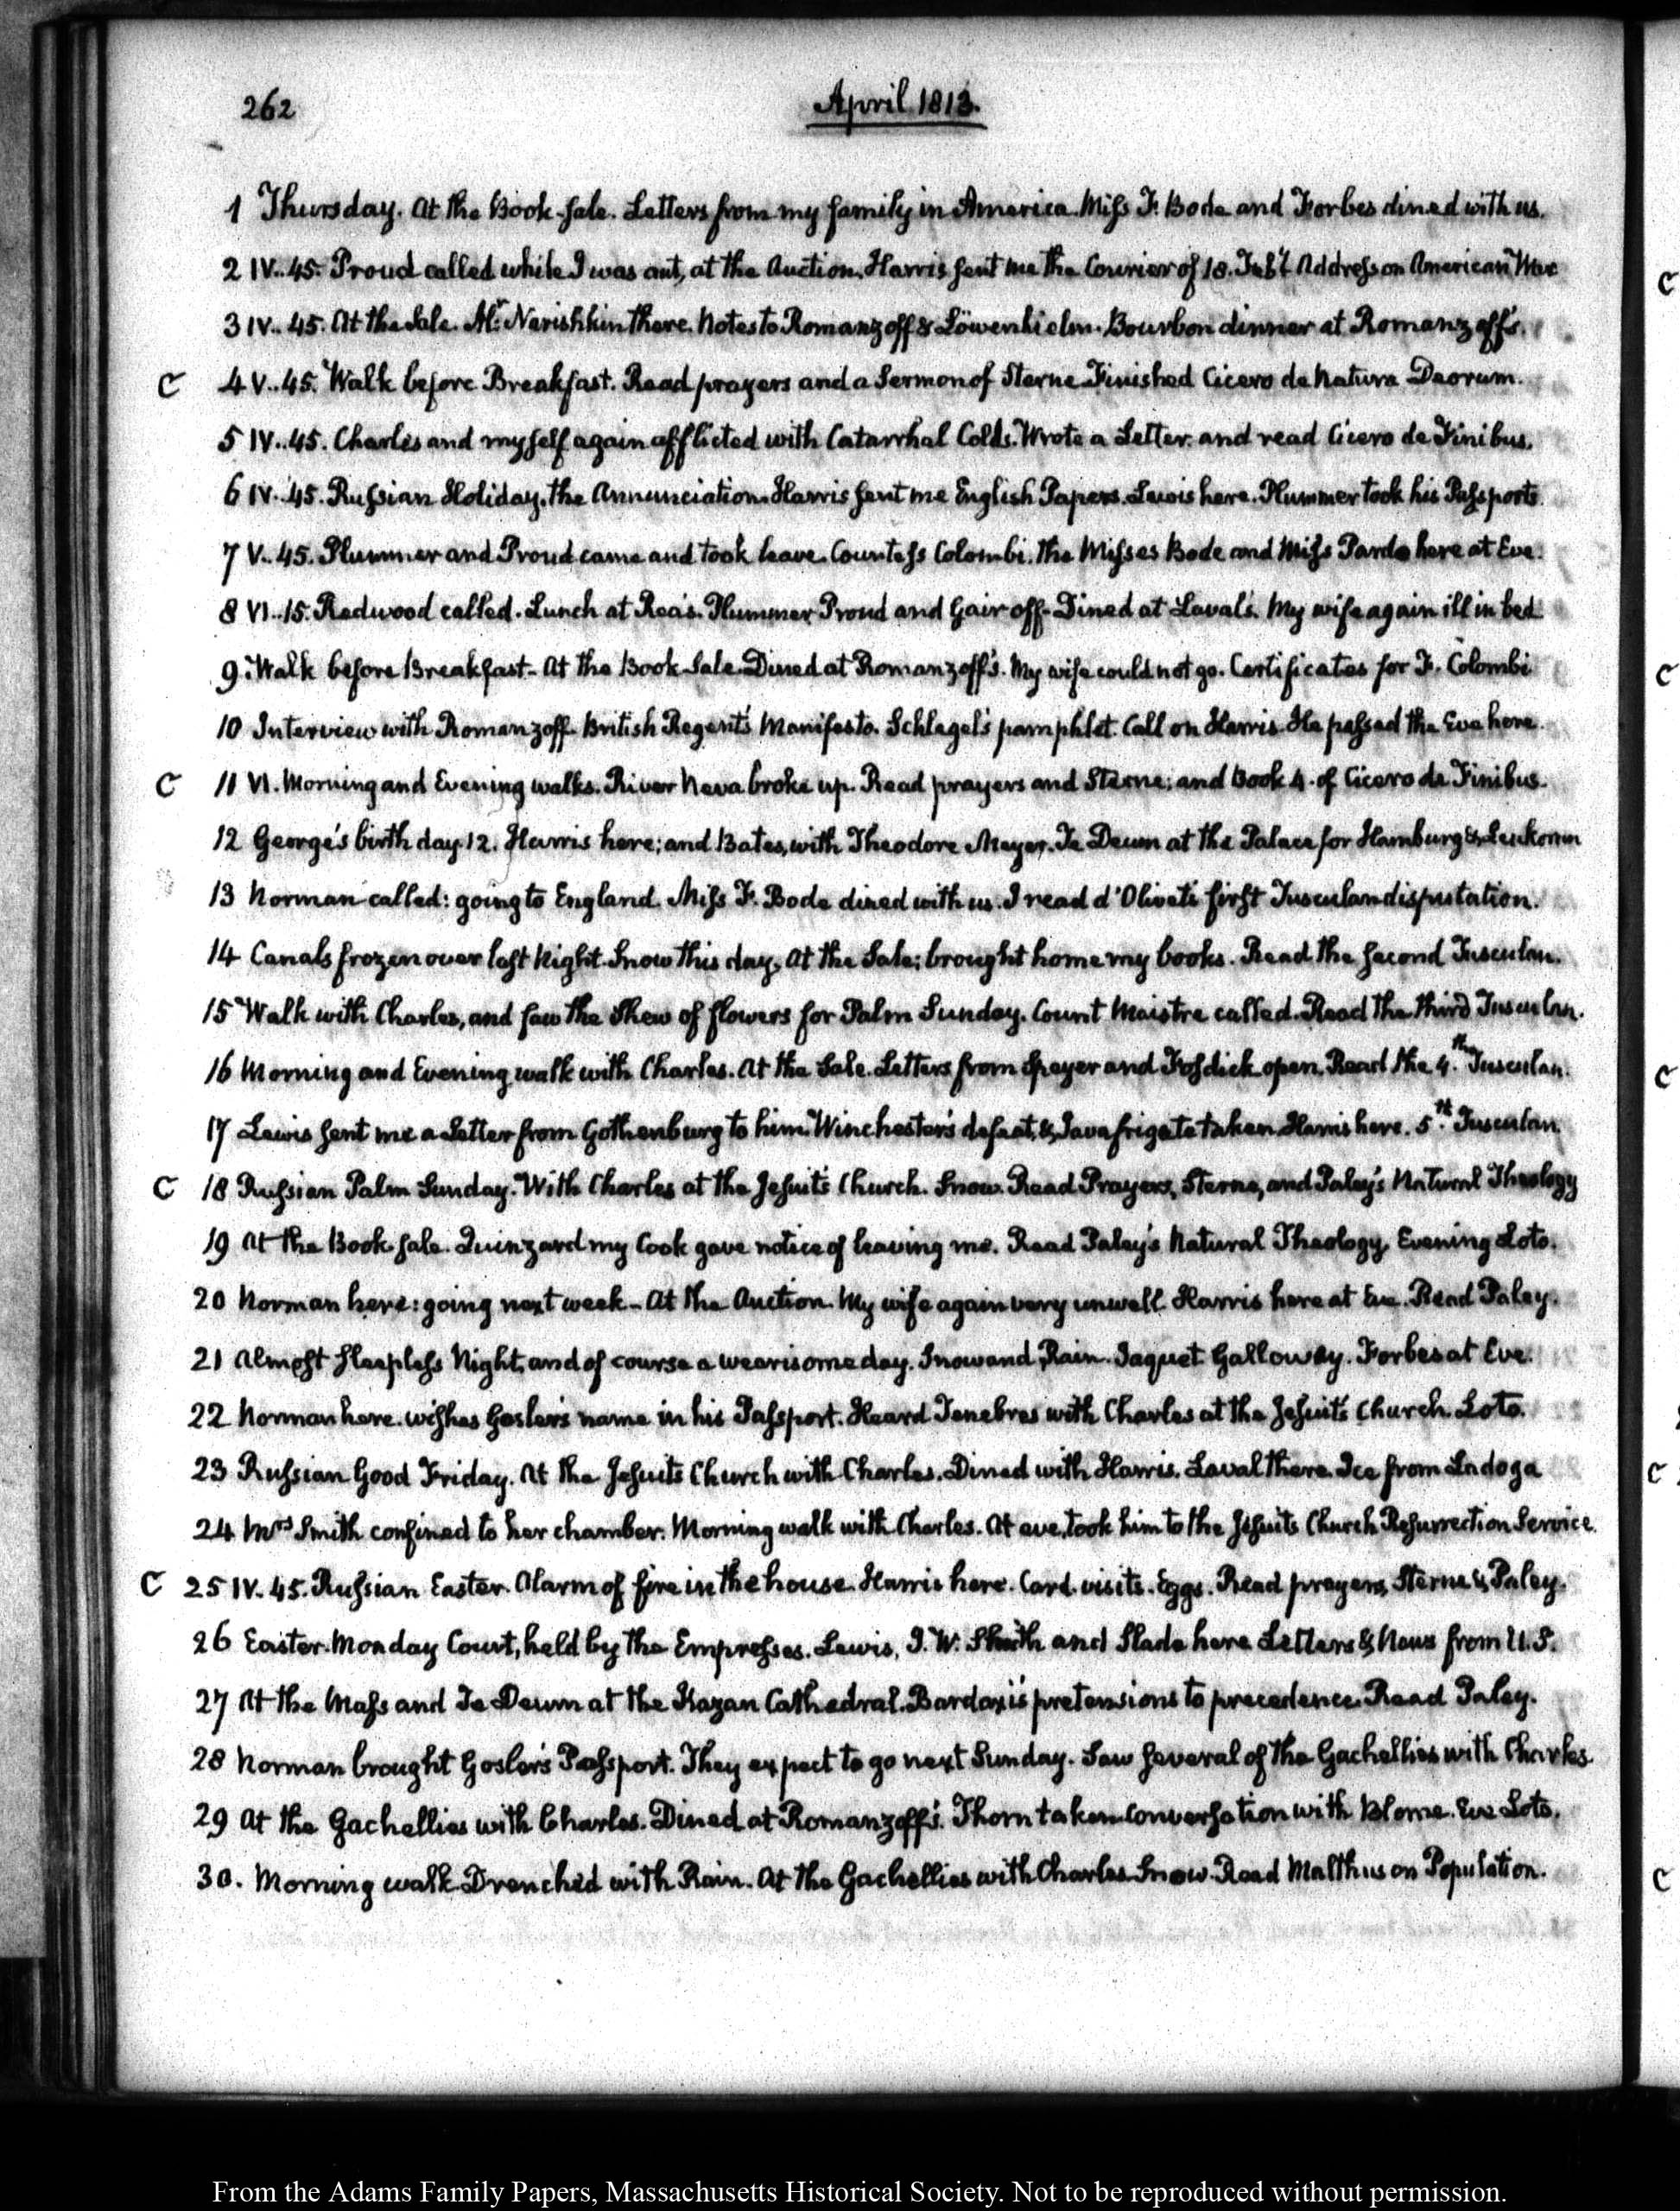 262
April 1813.
1 Thursday. At the Book-sale. Letters from my family in America. Miss F. Bode and Forbes dined with us.
2 IV..45. Proud called while I was out, at the Auction. Harris sent me the Courier of 18. Feby. Address on American War
3 IV..45. At the Sale. Mr. Narishkin there. Notes to Romanzoff & Löwenhielm. Bourbon dinner at Romanzoff's.
C 4 V..45. Walk before Breakfast. Read prayers and a Sermon of Sterne. Finished Cicero de Natura Deorum.
5 IV..45. Charles and myself again afflicted with Catarrhal Colds. Wrote a Letter: and read Cicero de Finibus.
6 IV..45. Russian Holiday, the Annunciation. Harris sent me English Papers. Lewis here. Plummer took his Passports.
7 V..45. Plummer and Proud came and took leave. Countess Colombi. The Misses Bode and Miss Pardo here at Eve.
8 VI..15. Redwood called. Lunch at Rea's. Plummer Proud and Gair off. Dined at Laval's. My wife again ill in bed.
9. Walk before Breakfast- At the Book Sale. Dined at Romanzoff's. My wife could not go. Certificates for F. Colombi
10 Interview with Romanzoff. British Regent's Manifesto. Schlegel's pamphlet. Call on Harris. He passed the Eve here.
C 11 VI. Morning and Evening walks. River Neva broke up. Read prayers and Sterne; and Book 4. of Cicero de Finibus.
12 George's birth day. 12. Harris here; and Bates, with Theodore Meyer. Te Deum at the Palace for Hamburg &
13 Norman called: going to England. Miss F. Bode dined with us. I read d'Olivet's first Tusculan disputation.
14 Canals frozen over last Night. Snow this day. At the Sale; brought home my books. Read the second Tusculan.
15 Walk with Charles, and saw the Shew of flowers for Palm Sunday. Count Maistre called. Read the third Tusculan.
16 Morning and Evening walk with Charles. At the Sale. Letters from Speyer and Fosdick open. Read the 4.th Tusculan.
17 Lewis sent me a Letter from Gothenburg to him. Winchester's defeat, & Java frigate taken. Harris here. 5.th Tusculan.
C 18 Russian Palm Sunday. With Charles at the Jesuits Church. Snow. Read Prayers, Sterne, and Paley's Natural Theology
19 At the Book sale. Quinzard my Cook gave notice of leaving me. Read Paley's Natural Theology. Evening Loto.
20 Norman here: going next week- At the Auction. My wife again very unwell. Harris here at Eve. Read Paley.
21 Almost sleepless Night, and of course a wearisome day. Snow and Rain. Jaquet. Galloway. Forbes at Eve.
22 Norman here. wishes Gosler's name in his Passport. Heard Tenebres with Charles at the Jesuits Church. Loto.
23 Russian Good Friday. At the Jesuits Church with Charles. Dined with Harris. Laval there. Ice from Ladoga
24 Mrs Smith confined to her chamber. Morning walk with Charles. At eve, took him to the Jesuits Church Resurrection Service.
C 25 IV. 45. Russian Easter. Alarm of fire in the house. Harris here. Card visits. Eggs. Read prayers, Sterne & Paley.
26 Easter-Monday Court, held by the Empresses. Lewis, J. W. Smith and Slade here. Letters & News from U.S.
27 At the Mass and Te Deum at the Kazan Cathedral. Bardaxi's pretensions to precedence. Read Paley.
28 Norman brought Gosler's Passport. They expect to go next Sunday. Saw several of the Gachellies with Charles.
29 At the Gachellies with Charles. Dined at Romanzoff's. Thorn taken. Conversation with Blome. Eve Loto.
30. Morning walk. Drenched with Rain. At the Gachellies with Charles. Snow. Read Malthus on Population.
From the Adams Family Papers, Massachusetts Historical Society. Not to be reproduced without permission.